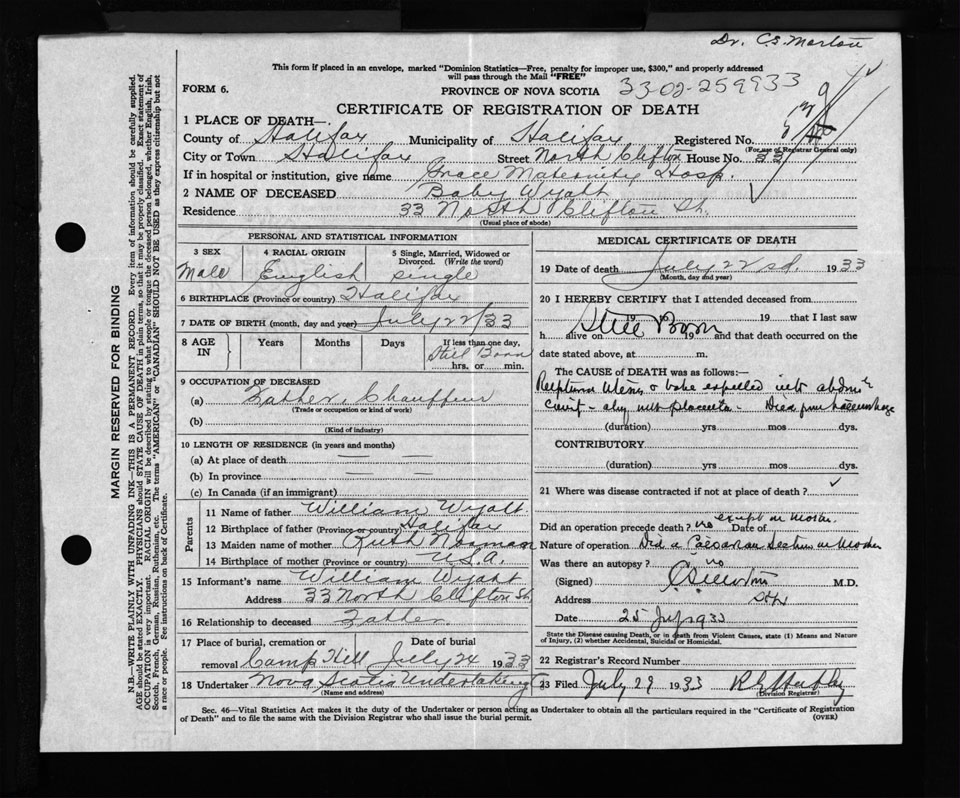 Dr. C.S. Morton
This form if placed in an envelope, marked "Dominion Statistics—Free, penalty for improper use, $300," and properly addressed
will pass through the Mail "FREE"
FORM 6.
PROVINCE OF NOVA SCOTIA
33-02-259933
CERTIFICATE OF REGISTRATION OF DEATH
1 PLACE OF DEATH—.
County of Halifax Municipality of Halifax Registered No.
(For use of Registrar General only)
City or Town Halifax Street North Clifton House No. 33
If in hospital or institution, give name Grace Maternity Hosp.
2 NAME OF DECEASED Baby Wyatt
Residence 33 North Clifton St.
(Usual place of abode)
PERSONAL AND STATISTICAL INFORMATION
3 SEX
Male
4 RACIAL ORIGIN
English
5 Single, Married, Widowed or
Divorced. (Write the word)
single
6 BIRTHPLACE (Province or country) Halifax
7 DATE OF BIRTH (month, day and year) July 22/33
8 AGE
IN
Years Months Days
If less than one day,
Still Born
hrs. or min.
9 OCCUPATION OF DECEASED
(a) Father, Chauffeur
(Trade or occupation or kind of work)
(b)
(Kind of industry)
10 LENGTH OF RESIDENCE (in years and months)
(a) At place of death — —
(b) In province — —
(c) In Canada (if an immigrant)
Parents
11 Name of father William Wyatt
12 Birthplace of father (Province or country) Halifax
13 Maiden name of mother Ruth Norman
14 Birthplace of mother (Province or country) U.S.A.
15 Informant's name William Wyatt
Address 33 North Clifton St
16 Relationship to deceased Father
17 Place of burial, cremation or
removal Camp Hill
Date of burial
July 24 1933
18 Undertaker Nova Scotia Undertaking Co
(Name and address)
MEDICAL CERTIFICATE OF DEATH
19 Date of death July 22nd. 1933
(Month, day and year)
20 I HEREBY CERTIFY that I attended deceased from
19 to 19 that I last saw
Still Born
h alive on 19 and that death occurred on the
date stated above, at m.
The CAUSE OF DEATH was as follows:—
Rupture Uterus & babe expelled into abdom
cavity - also placenta - Died from haemorrhage
(duration) yrs mos dys.
CONTRIBUTORY
(duration) yrs mos dys.
21 Where was disease contracted if not at place of death?
Did an operation precede death? no except on Mother Date of
Nature of operation Did a Caesarian Section on Mother
Was there an autopsy? no
(Signed) C S Morton M.D.
Address
Date 25 July 1933
State the Disease causing Death, or in death from Violent Causes, state (1) Means and Nature
of Injury, (2) whether Accidental, Suicidal or Homicidal.
22 Registrar's Record Number
23 Filed July 29 1933
(Division Registrar)
Sec. 46—Vital Statistics Act makes it the duty of the Undertaker or person acting as Undertaker to obtain all the particulars required in the "Certificate of Registration
of Death" and to file the same with the Division Registrar who shall issue the burial permit.
(OVER)
MARGIN RESERVED FOR BINDING
N.B.—WRITE PLAINLY WITH UNFADING INK—THIS IS A PERMANENT RECORD. Every item of information should be carefully supplied.
AGE should be stated EXACTLY. PHYSICIANS should STATE CAUSE OF DEATH in plain terms, so that it may be properly classified. Exact statement of
OCCUPATION is very important. RACIAL ORIGIN will be described by stating to what people or tongue the deceased person belonged, whether English, Irish,
Scotch, French, German, Russian, Ruthenian, etc. The terms "AMERICAN" or "CANADIAN" SHOULD NOT BE USED as they express citizenship but not
a race or people. See instructions on back of Certificate.